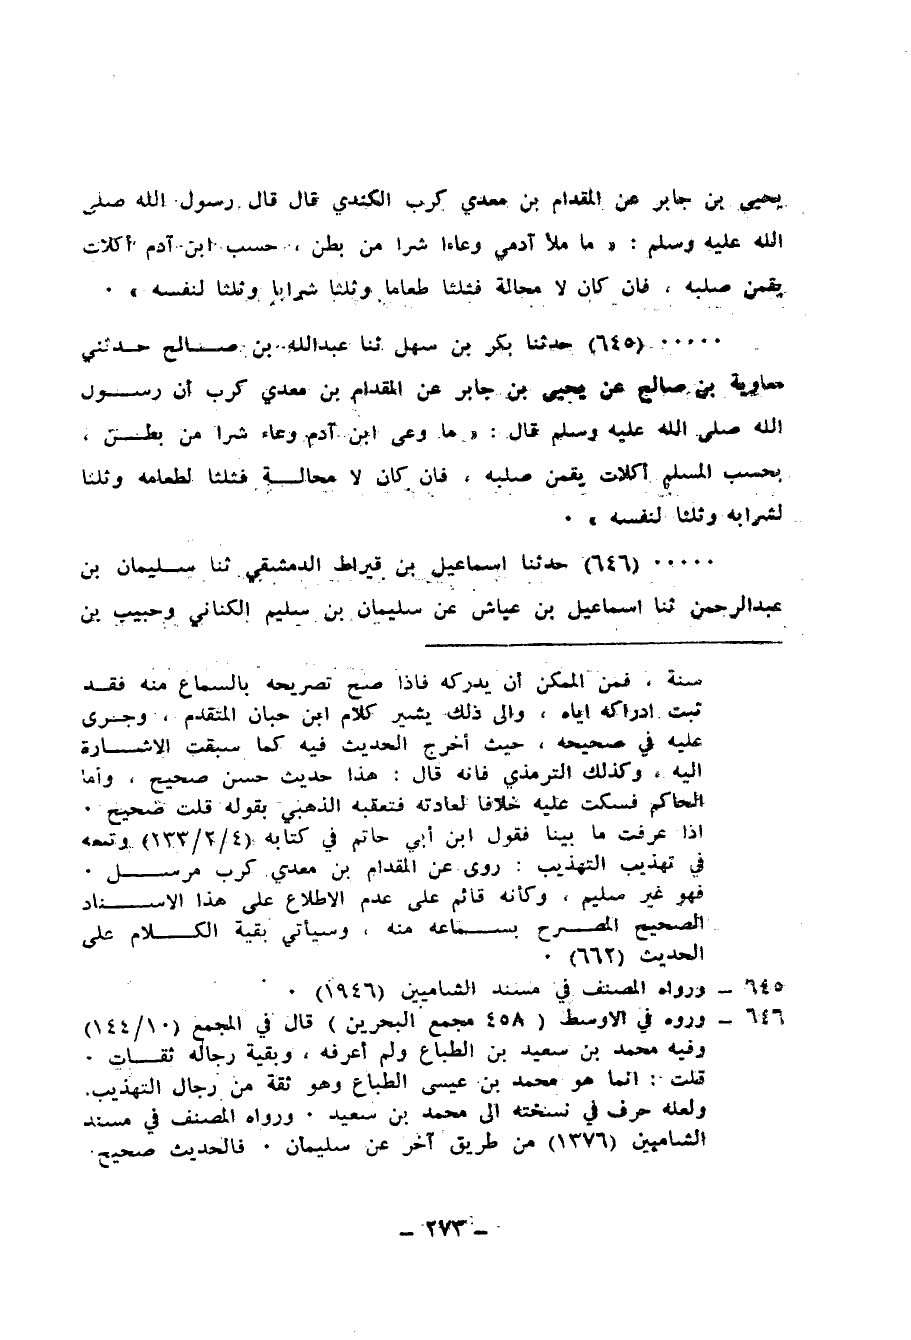 يحيى بن جابر عن المقدام بن معدي كرب الكندي قال قال رسول الله صلى
الله عليه وسلم : « ما ملأ آدمي وعاءا شرا من بطن ، حسب ابن آدم أكلات
يقمن صلبه ، فان كان لا محالة فثلثا طعاما وثلثا شرابا وثلثا لنفسه » ٠
٠٠٠٠٠ (٦٤٥) حدثنا بكر بن سهل ثنا عبدالله بن صـالح حـدثني
معاوية بن صالح عن يحيى بن جابر عن المقدام بن معدي كرب أن رسـول
الله صلى الله عليه وسلم قال : « ما وعى ابن آدم وعاء شرا من بطـن ،
بحسب المسلم أكلات يقمن صلبه ، فان كان لا محالـة فثلثا لطعامه وثلثا
لشرابه وثلثا لنفسه » ٠
٠٠٠٠٠ (٦٤٦) حدثنا اسماعيل بن قيراط الدمشقي ثنا سـليمان بن
عبدالرحمن ثنا اسماعيل بن عياش عن سليمان بن سليم الكناني وحبيب بن
سنة ، فمن الممكن أن يدركه فاذا صح تصريحه بالسماع منه فقـد
ثبت ادراكه اياه ، والى ذلك يشير كلام ابن حبان المتقدم ، وجـرى
عليه في صحيحه ، حيث أخرج الحديث فيه كما سبقت الاشـارة
اليه ، وكذلك الترمذي فانه قال : هذا حديث حسن صحيح ، وأما
الحاكم فسكت عليه خلافا لعادته فتعقبه الذهبي بقوله قلت صحيح ٠
اذا عرفت ما بينا فقول ابن أبي حاتم في كتابه (٤/٢/١٣٣) وتبعه
في تهذيب التهذيب : روى عن المقدام بن معدي كرب مرسـل ٠
فهو غير سليم ، وكأنه قائم على عدم الاطلاع على هذا الاسـناد
الصحيح المصـرح بسـماعه منه ، وسيأتي بقية الكـلام على
الحديث (٦٦٢) ٠
٦٤٥ ـ ورواه المصنف في مسند الشاميين (١٩٤٦) ٠
٦٤٦ ـ وروه في الاوسط ( ٤٥٨ مجمع البحرين ) قال في المجمع (١٤٤/١٠)
وفيه محمد بن سعيد بن الطباع ولم أعرفه ، وبقية رجاله ثقـات ٠
قلت : انما هو محمد بن عيسى الطباع وهو ثقة من رجال التهذيب.
ولعله حرف في نسخته الى محمد بن سعيد ٠ ورواه المصنف في مسند
الشاميين (١٣٧٦) من طريق آخر عن سليمان ٠ فالحديث صحيح
ـ ٢٧٣ ـ